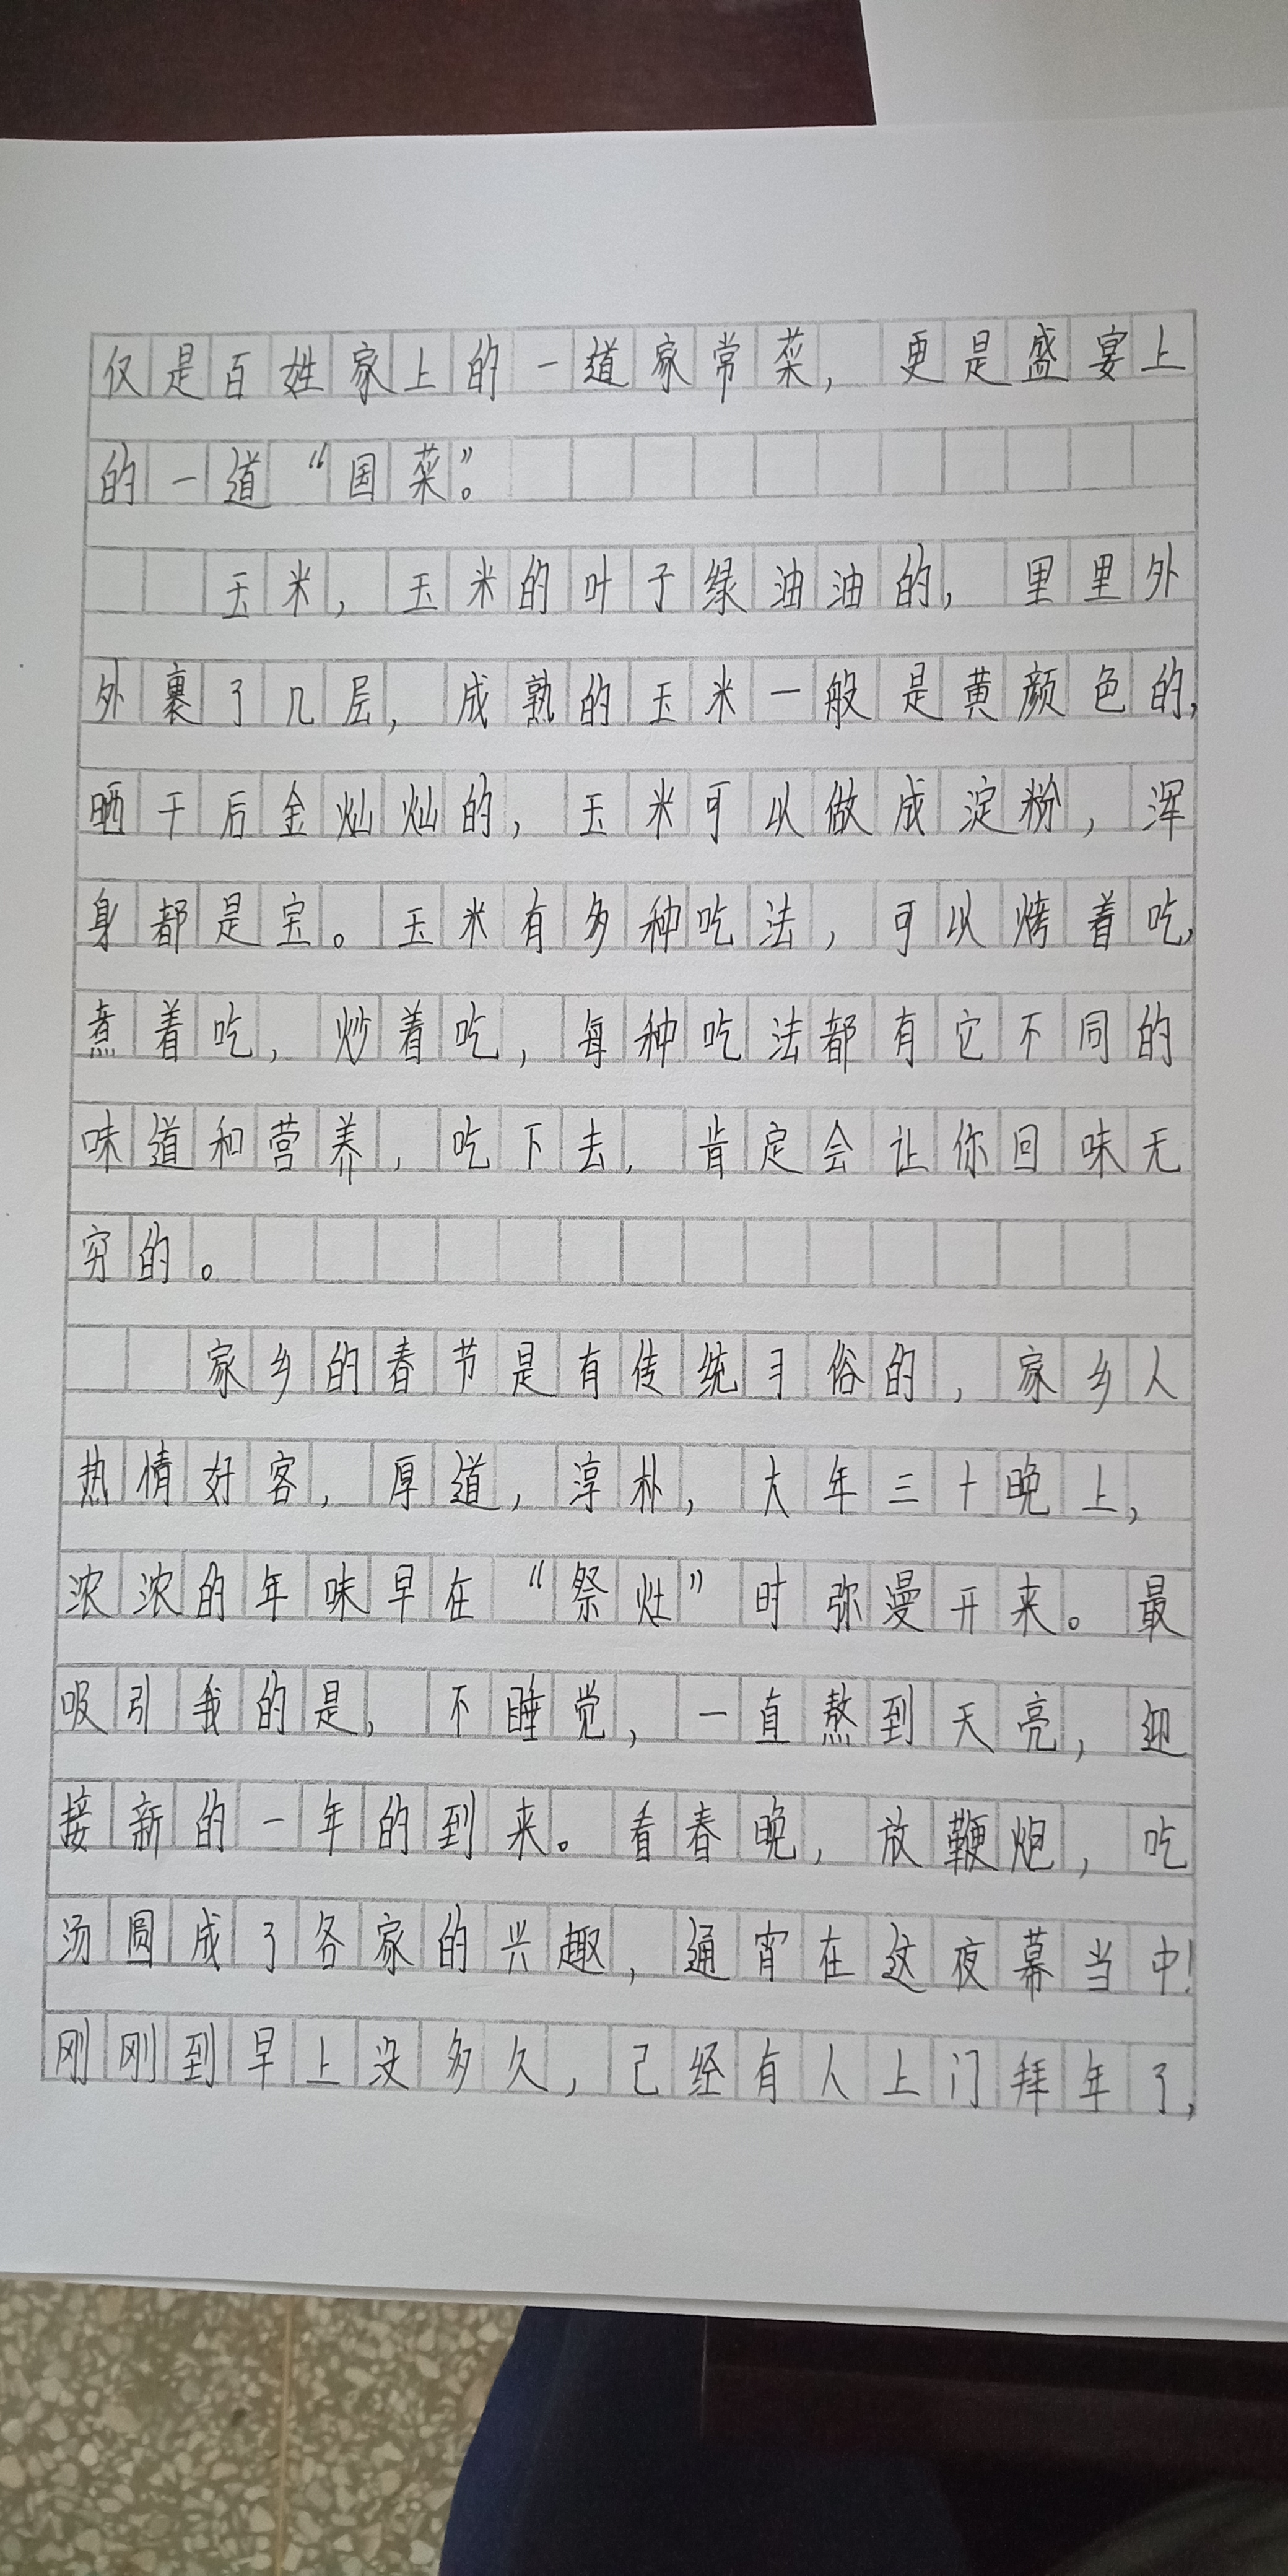 仅是百姓家上的一道家常菜，更是盛宴上
的一道“国菜”。
玉米，玉米的叶子绿油油的，里里外
外裹了几层，成熟的玉米一般是黄颜色的，
晒干后金灿灿的，玉米可以做成淀粉，浑
身都是宝。玉米有多种吃法，可以烤着吃，
煮着吃，炒着吃，每种吃法都有它不同的
味道和营养，吃下去，肯定会让你回味无
穷的。
家乡的春节是有传统习俗的，家乡人
热情好客，厚道，淳朴，大年三十晚上，
浓浓的年味早在“祭灶”时弥曼开来。最
吸引我的是，不睡觉，一直熬到天亮，迎
接新的一年的到来。看春晚，放鞭炮，吃
汤圆成了各家的兴趣，通宵在这夜幕当中！
刚刚到早上没多久，己经有人上门拜年了，